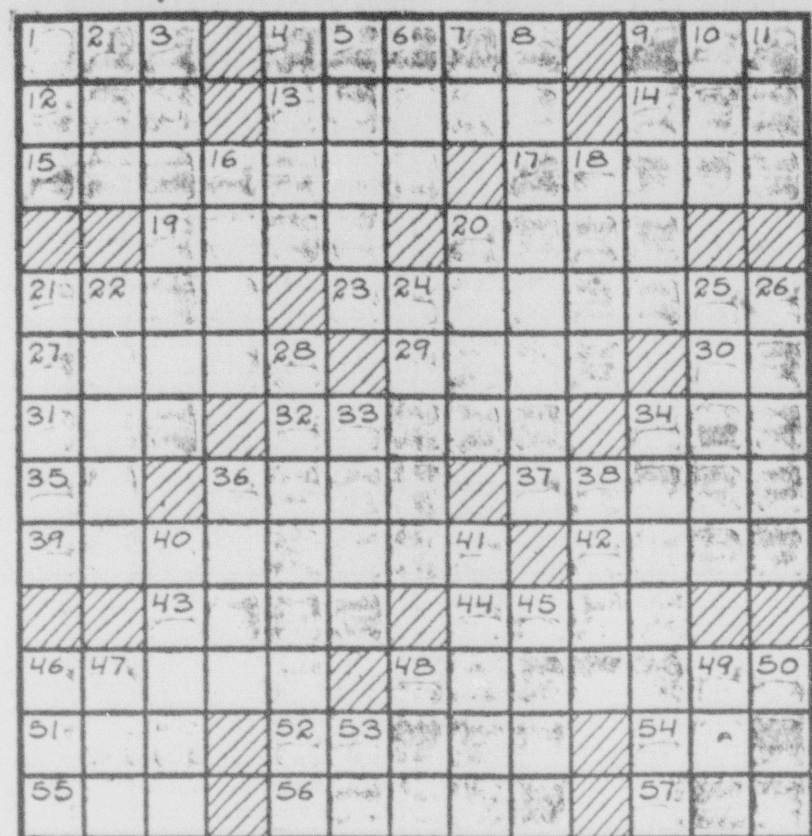 1 2 3 4 5 6 7 8 9 10 11
12 13 14
15 16 17 18
19 20
21 22 23 24 25 26
27 28 29 30
31 32 33 34
35 36 37 38
39 40 41 42
43 44 45
46 47 48 49 50
51 52 53 54
55 56 57